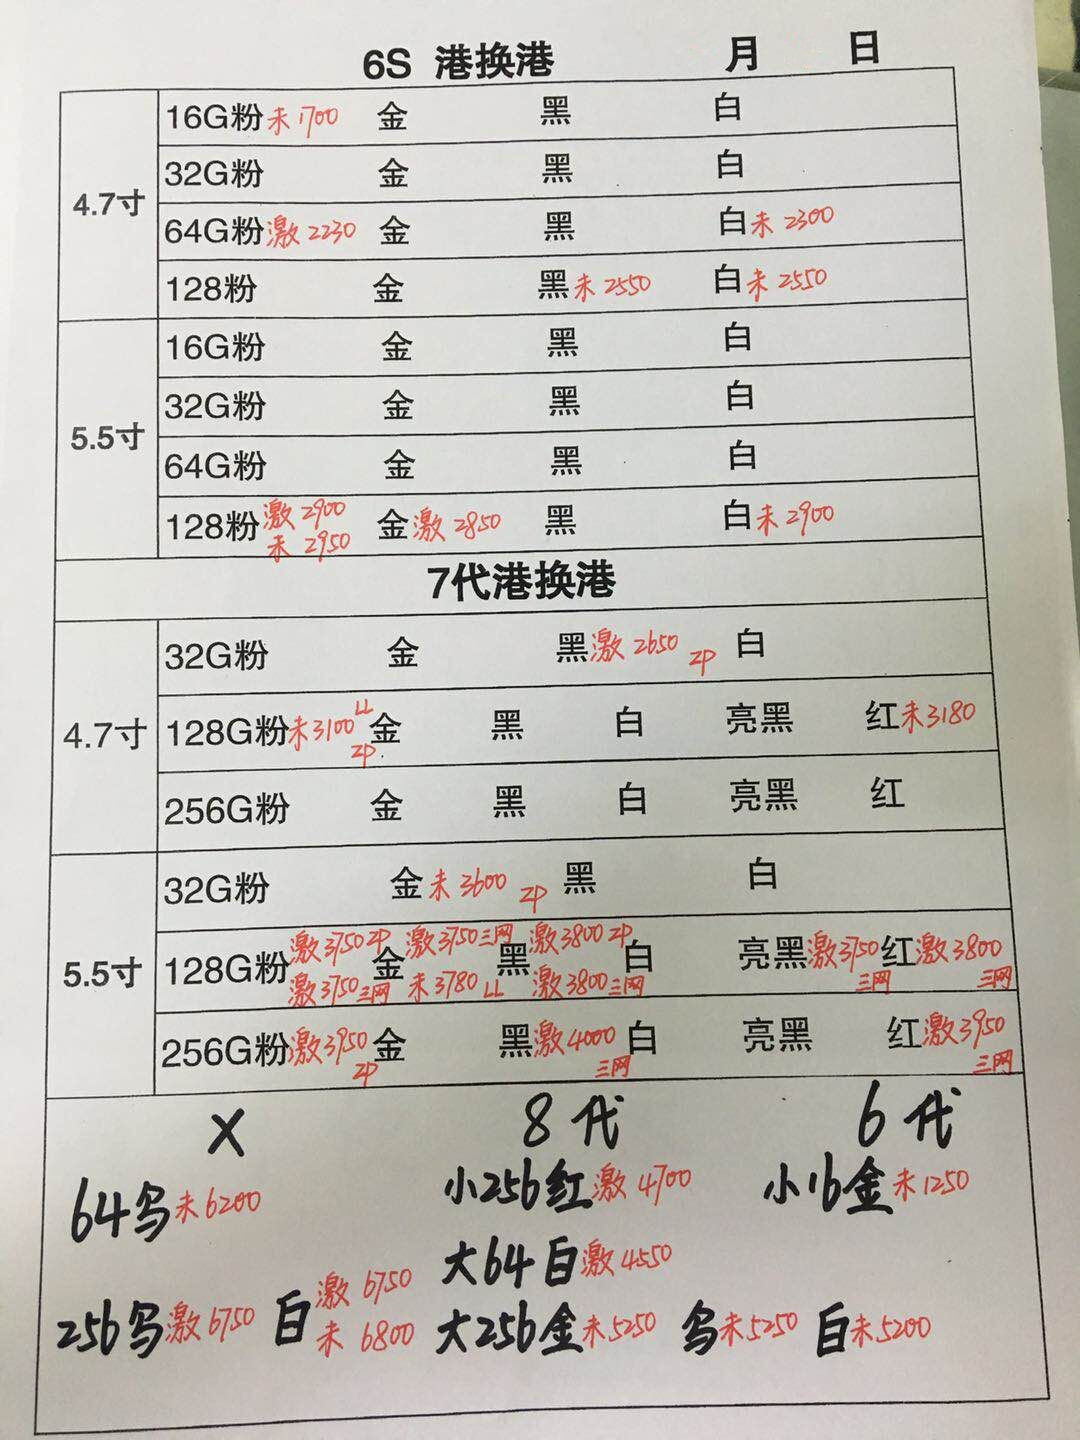 6S 港换港 月 日
4.7寸
16G粉未1700 金 黑 白
32G粉 金 黑 白
64G粉激2230 金 黑 白未2300
128粉 金 黑未2550 白未2550
5.5寸
16G粉 金 黑 白
32G粉 金 黑 白
64G粉 金 黑 白
128粉激2900 未2950 金激2850 黑 白未2900
7代港换港
4.7寸
32G粉 金 黑激2650 ZP 白
128G粉未3100 LL ZP 金 黑 白 亮黑 红未3180
256G粉 金 黑 白 亮黑 红
5.5寸
32G粉 金未3600 ZP 黑 白
128G粉激3750ZP 激3750三网 金激3750三网 未3780LL 黑激3800ZP 激3800三网 白 亮黑激3750三网 红激3800三网
256G粉激3950ZP 金 黑激4000三网 白 亮黑 红激3950三网
X 8代 6代
64乌未6200 小256红激4700 小16金未1250
大64白激4550
256乌激6750 白激6750 未6800 大256金未5250 乌未5250 白未5200